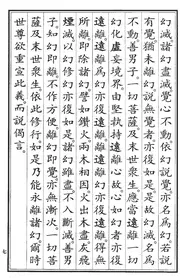 幻滅諸幻盡滅覺心不動依幻說覺亦名為幻若說
有覺猶未離幻說無覺者亦復如是是故幻滅名為
不動善男子一切菩薩及末世衆生應當遠離一切
幻化虛妄境界由堅執持遠離心故心如幻者亦復
遠離遠離為幻亦復遠離離遠離幻亦復遠離得無
所離即除諸幻譬如鑽火兩木相因火出木盡灰飛
煙滅以幻修幻亦復如是諸幻雖盡不入斷滅善男
子知幻即離不作方便離幻即覺亦無漸次一切菩
薩及末世衆生依此修行如是乃能永離諸幻爾時
世尊欲重宣此義而說偈言
七